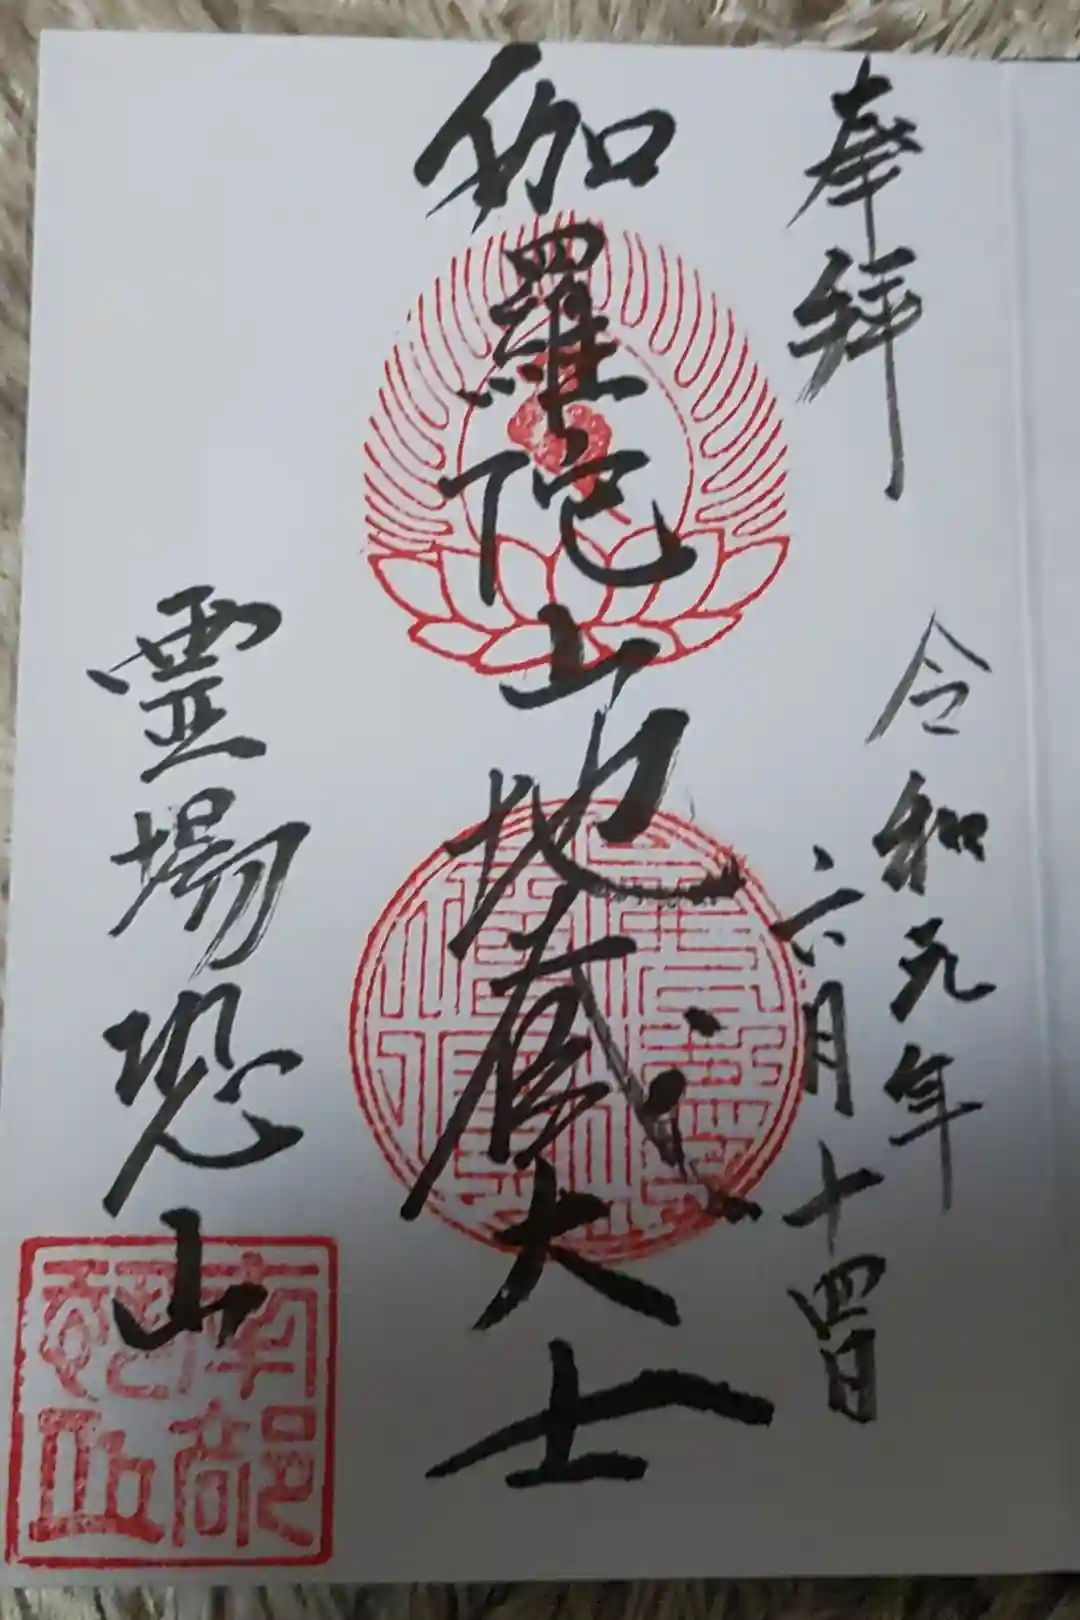 奉拝
令和元年
六月十四日
伽羅陀山地蔵大士
霊場恐山
南部